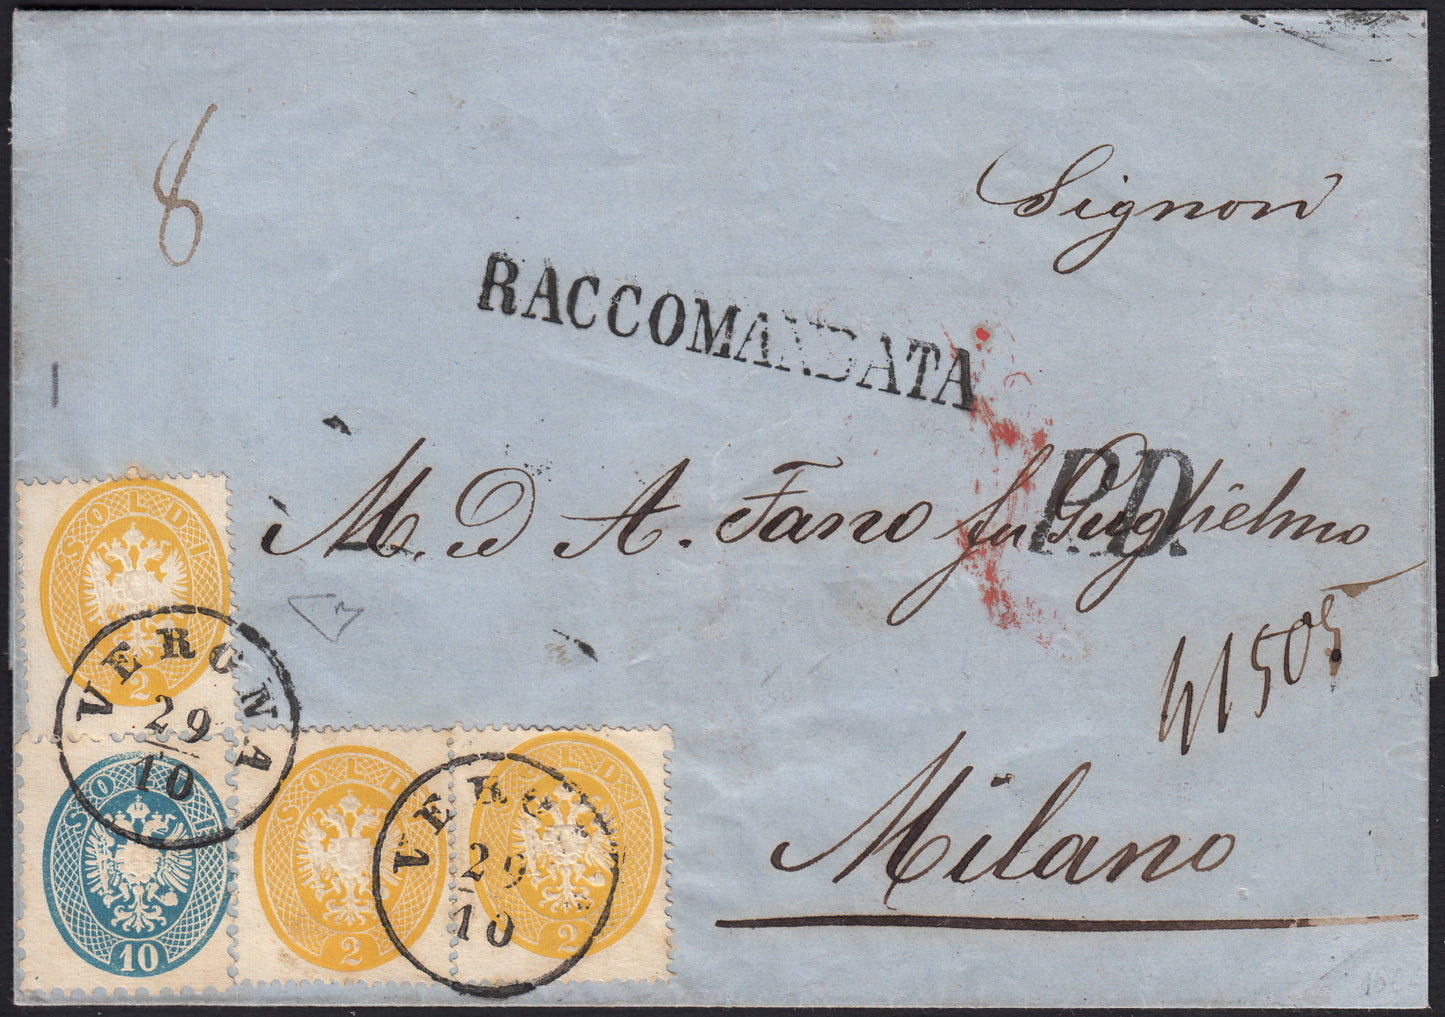 8
Signor
RACCOMANDATA
P.D.
M. D A. Fano fu Guglielmo
Milano
SOLDI
2
VERONA
29
10
SOLDI
10
SOLDI
2
SOLDI
2
VERONA
29
10